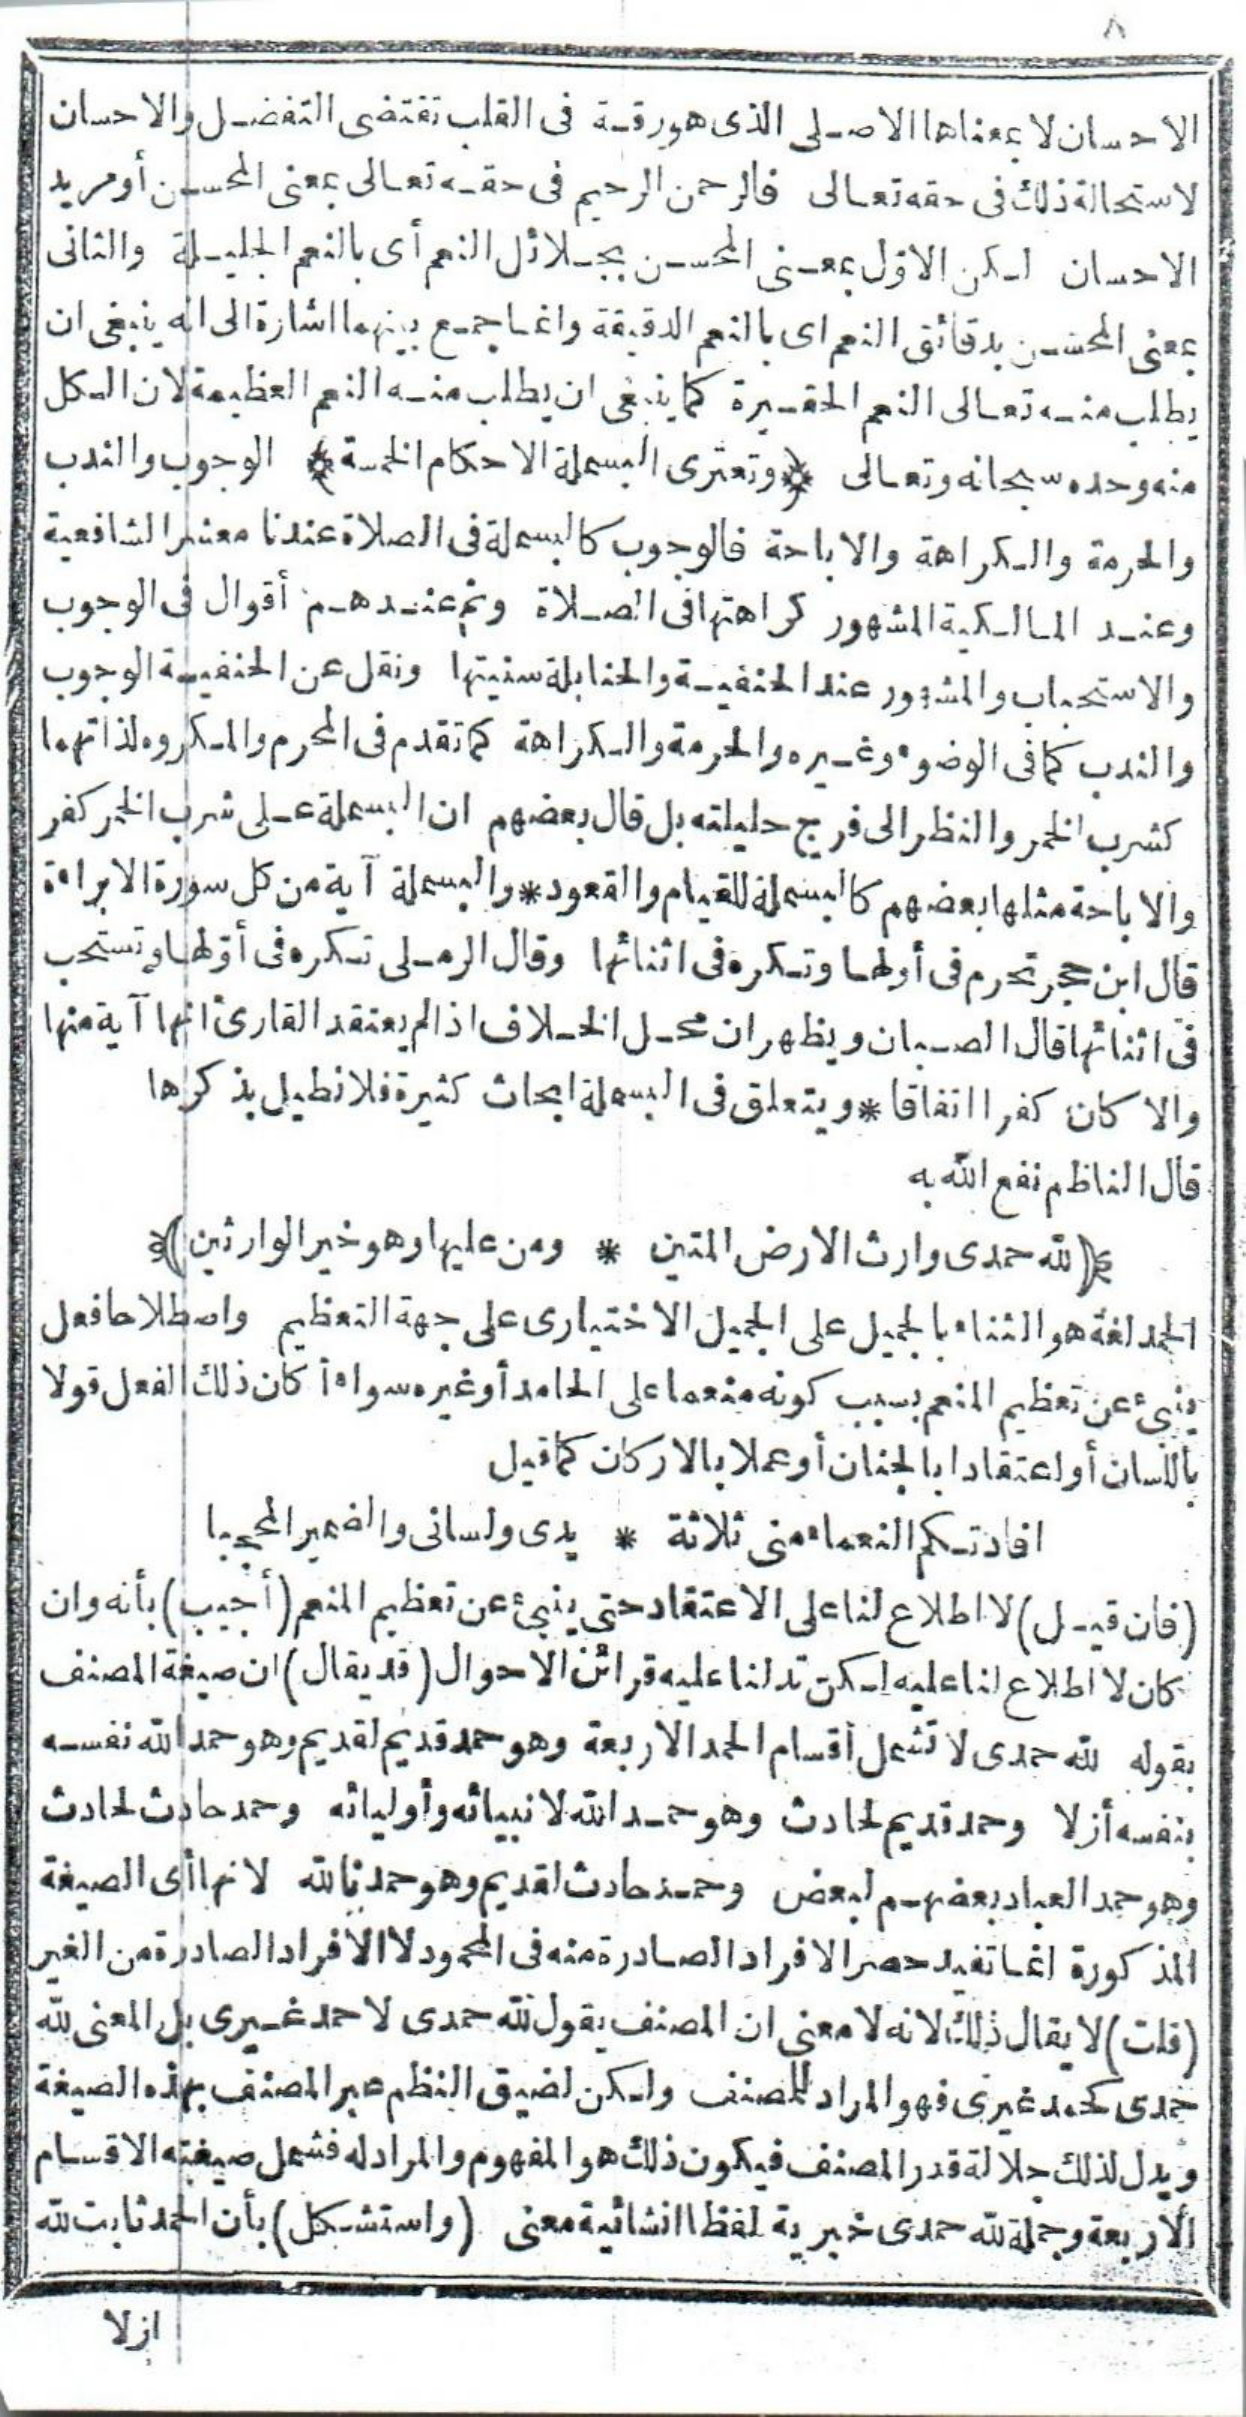 ٨
الاحسان لا بمعناها الاصلى الذى هو رقة فى القلب تقتضى التفضل والاحسان
لاستحالة ذلك فى حقه تعالى فالرحمن الرحيم فى حقه تعالى بمعنى المحسن أو مريد
الاحسان لكن الاوّل بمعنى المحسن بجلائل النعم أى بالنعم الجليلة والثانى
بمعنى المحسن بدقائق النعم اى بالنعم الدقيقة وانما جمع بينهما اشارة الى انه ينبغى ان
يطلب منه تعالى النعم الحقيرة كما ينبغى ان يطلب منه النعم العظيمة لان الكل
منه وحده سبحانه وتعالى ﴿وتعترى البسملة الاحكام الخمسة﴾ الوجوب والندب
والحرمة والكراهة والاباحة فالوجوب كالبسملة فى الصلاة عندنا معشر الشافعية
وعند المالكية المشهور كراهتها فى الصلاة وثم عندهم أقوال فى الوجوب
والاستحباب والمشهور عند الحنفية والحنابلة سنيتها ونقل عن الحنفية الوجوب
والندب كما فى الوضوء وغيره والحرمة والكراهة كما تقدم فى المحرم والمكروه لذاتهما
كشرب الخمر والنظر الى فرج حليلته بل قال بعضهم ان البسملة على شرب الخمر كفر
والاباحة مثلها بعضهم كالبسملة للقيام والقعود * والبسملة آية من كل سورة الا براءة
قال ابن حجر تحرم فى أولها وتكره فى اثنائها وقال الرملى تكره فى أوّلها وتستحب
فى اثنائها قال الصبان ويظهر ان محل الخلاف اذا لم يعتقد القارئ انها آية منها
والا كان كفرا اتفاقا * ويتعلق فى البسملة ابحاث كثيرة فلا نطيل بذكرها
قال الناظم نفع الله به
﴿لله حمدى وارث الارض المتين * ومن عليها وهو خير الوارثين﴾
الحمد لغة هو الثناء بالجميل على الجميل الاختيارى على جهة التعظيم واصطلاحا فعل
ينبئ عن تعظيم المنعم بسبب كونه منعما على الحامد أو غيره سواء أ كان ذلك الفعل قولا
باللسان أو اعتقادا بالجنان أو عملا بالاركان كما قيل
افادتكم النعماء منى ثلاثة * يدى ولسانى والضمير المحجبا
(فان قيل) لا اطلاع لنا على الاعتقاد حتى ينبئ عن تعظيم المنعم (أجيب) بأنه وان
كان لا اطلاع لنا عليه لكن تدلنا عليه قرائن الاحوال (قد يقال) ان صيغة المصنف
بقوله لله حمدى لا تشمل أقسام الحمد الأربعة وهو حمد قديم لقديم وهو حمد الله نفسه
بنفسه أزلا وحمد قديم لحادث وهو حمد الله لانبيائه وأوليائه وحمد حادث لحادث
وهو حمد العباد بعضهم لبعض وحمد حادث لقديم وهو حمدنا لله لانها أى الصيغة
المذكورة انما تفيد حصر الافراد الصادرة منه فى المحمود لا الافراد الصادرة من الغير
(قلت) لا يقال ذلك لانه لا معنى ان المصنف يقول لله حمدى لا حمد غيرى بل المعنى لله
حمدى كحمد غيرى فهو المراد للمصنف ولكن لضيق النظم عبر المصنف بهذه الصيغة
ويدل لذلك جلالة قدر المصنف فيكون ذلك هو المفهوم والمراد له فشمل صيغته الاقسام
الاربعة وجملة لله حمدى خبرية لفظا انشائية معنى (واستشكل) بأن الحمد ثابت لله
ازلا